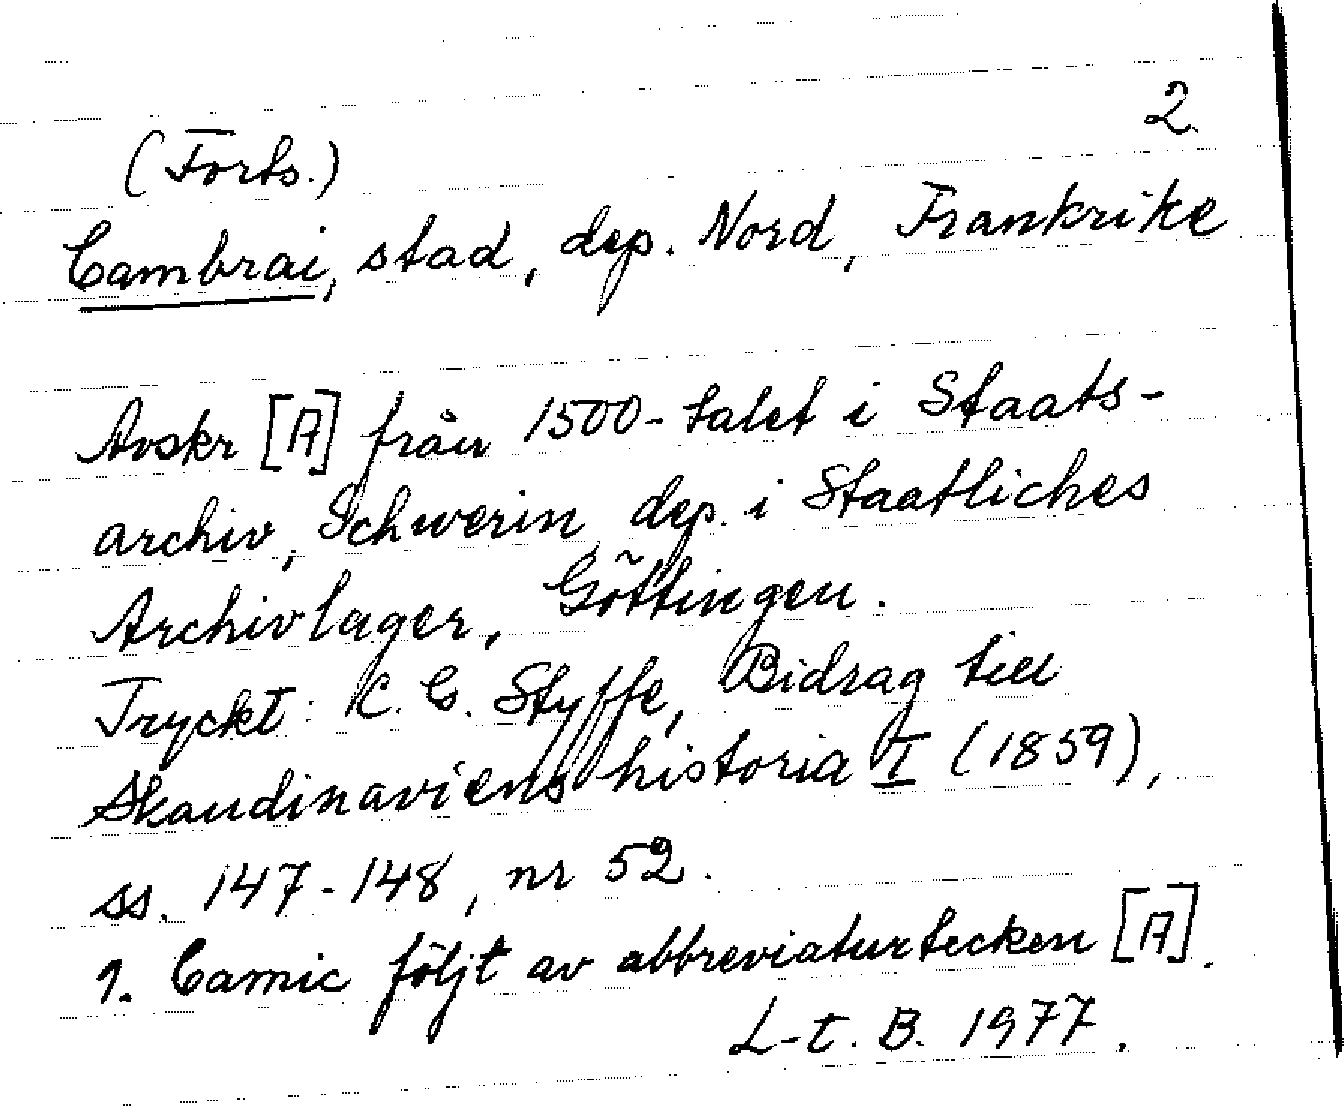 2
(Forts.)
Cambrai, stad, dep. Nord, Frankrike
Avskr [A] från 1500-talet i Staats-
archiv, Schwerin dep. i Staatliches
Archivlager, Göttingen.
Tryckt: C. G. Styffe, Bidrag till
Skandinaviens historia I (1859),
ss. 147-148, nr 52.
1. Camic följt av abbreviaturtecken [A].
L-t. B. 1977.